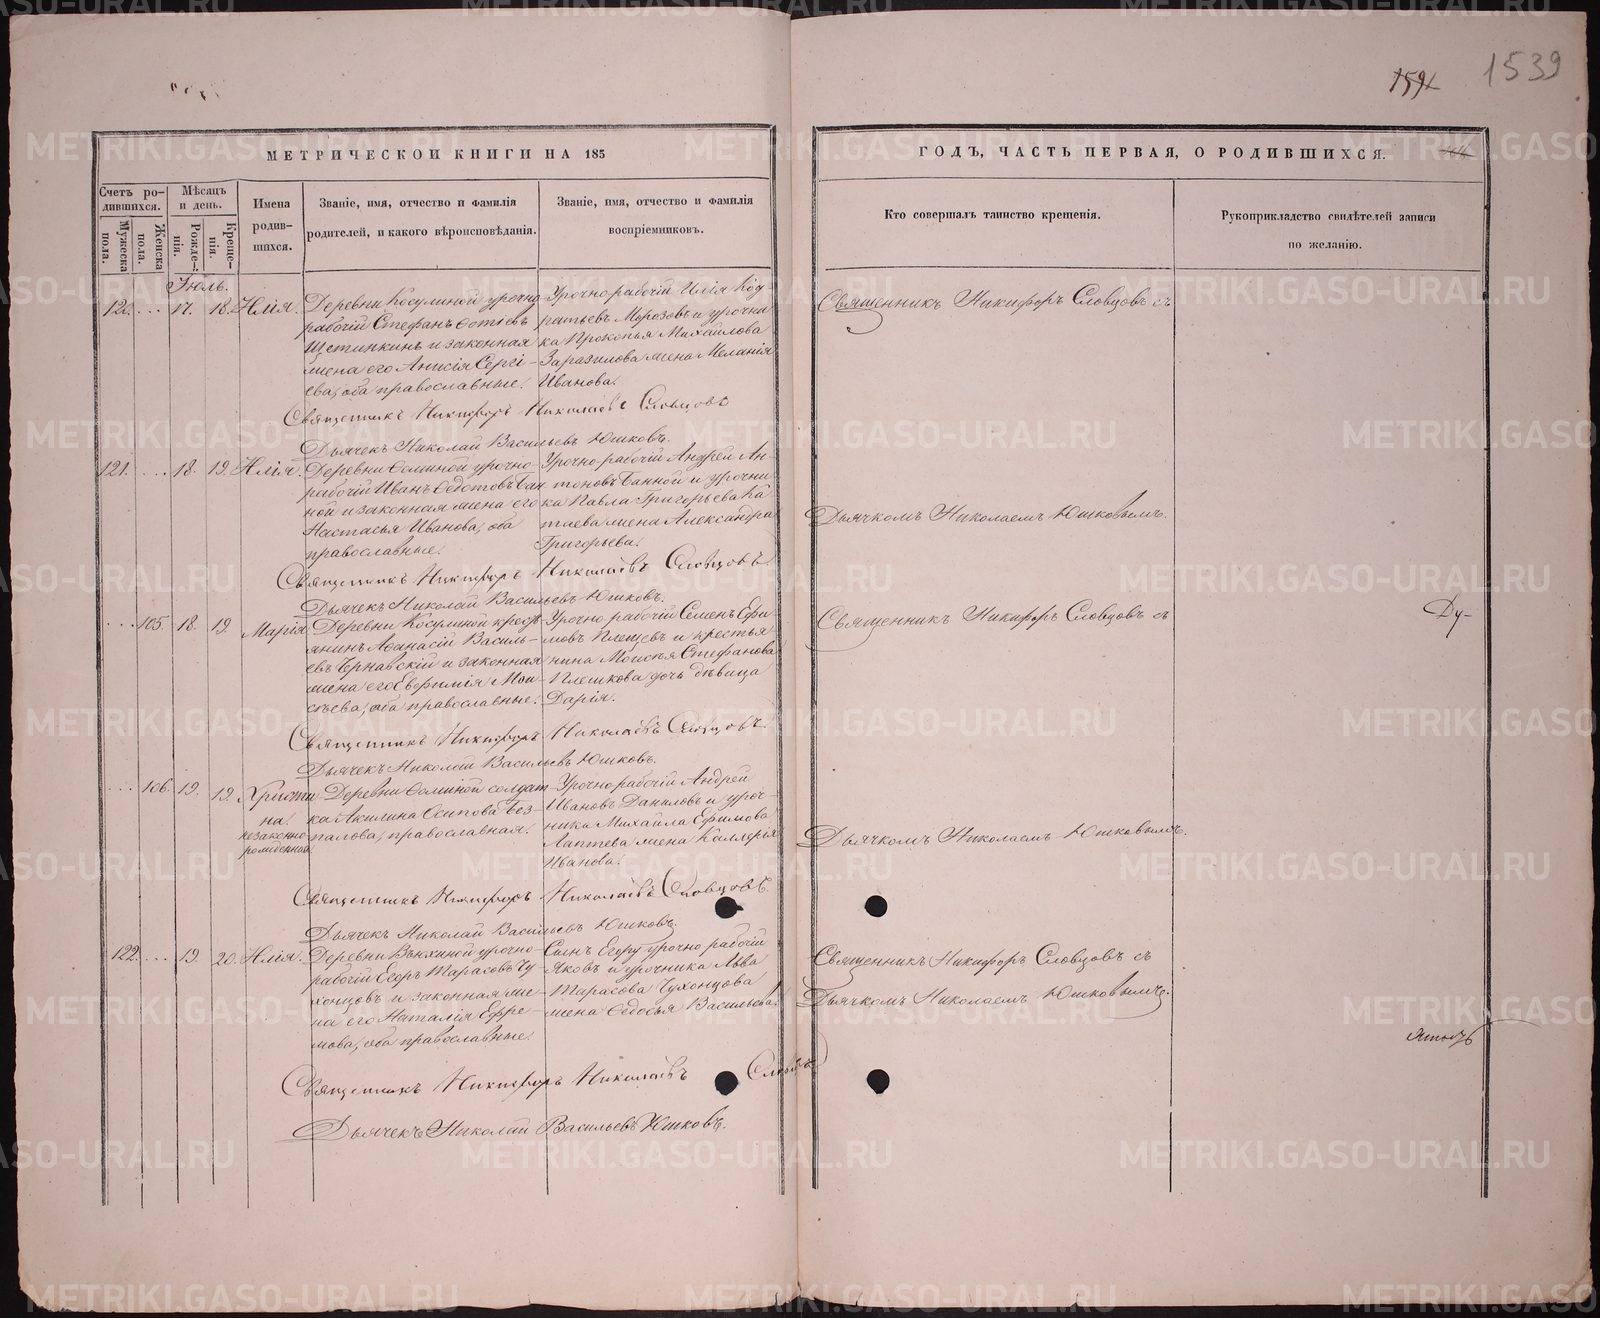 1539
МЕТРИЧЕСКОИ КНИГИ НА 185
ГОДЪ, ЧАСТЬ ПЕРВАЯ, О РОДИВШИХСЯ.
Счетъ ро-
дившихся.
Мѣсяцъ
и день.
Мужеска
пола.
Женска
пола.
Рожде-
нія.
Креще-
нія.
Имена
родив-
шихся.
Званіе, имя, отчество и фамилія
родителей, и какого вѣроисповѣданія.
Званіе, имя, отчество и фамилія
воспріемниковъ.
Кто совершалъ таинство крещенія.
Рукоприкладство свидѣтелей записи
по желанію.
Іюль.
120. 17. 18. Илія.
Деревни Косулиной урочно
рабочій Стефанъ Фотіевъ
Щетинкинъ и законная
жена его Анисія Сергі-
ева, оба православные.
Урочно рабочій Илія
Морозовъ и урочни
ка Прокопья Михайлова
жена Меланія
Иванова.
Священникъ Никифоръ Словцовъ съ
Священникъ Никифоръ Николаевъ Словцовъ
Дьячекъ Николай Васильевъ Юшковъ.
121. 18. 19. Илія.
Деревни Фоминой урочно-
рабочій Иванъ Федотовъ Бан
ной и законная жена его
Настасья Иванова, оба
православные.
Урочно рабочій Андрей Ан-
тоновъ Банной и урочни
ка Павла Григорьева
жена Александра
Григорьева.
Дьячкомъ Николаемъ Юшковымъ.
Священникъ Никифоръ Николаевъ Словцовъ.
Дьячекъ Николай Васильевъ Юшковъ.
105. 18. 19. Марія
Деревни Косулиной кресть
янинъ Афанасій Василь-
евъ Чернавскій и законная
жена его Евфимія Мои-
сѣева, оба православные.
Урочно рабочій Семенъ Ефи
мовъ Плещевъ и крестья
нина Моисѣя Стефанова
Плешкова дочь дѣвица
Дарія.
Священникъ Никифоръ Словцовъ съ
Ду-
Священникъ Никифоръ Николаевъ Словцовъ.
Дьячекъ Николай Васильевъ Юшковъ.
106. 19. 19. Христи
на.
незаконно
рожденная.
Деревни Фоминой солдат
ка Акилина Осипова Без-
палова, православная.
Урочно рабочій Андрей
Ивановъ Даниловъ и уроч-
ника Михайла Ефимова
Лаптева жена Каллерія
Иванова.
Дьячкомъ Николаемъ Юшковымъ.
Священникъ Никифоръ Николаевъ Словцовъ.
Дьячекъ Николай Васильевъ Юшковъ.
122. 19. 20. Илія.
Деревни урочно-
рабочій Егоръ Тарасовъ Чу
хонцовъ и законная же-
на его Наталія Ефре-
мова, оба православные.
Сынъ Егору урочно рабочій
Яковъ и урочника Льва
Тарасова Чухонцова
жена Федосья Васильева.
Священникъ Никифоръ Словцовъ съ
Дьячкомъ Николаемъ Юшковымъ.
Священникъ Никифоръ Николаевъ Словцовъ
Дьячекъ Николай Васильевъ Юшковъ.
METRIKI.GASO-URAL.RU